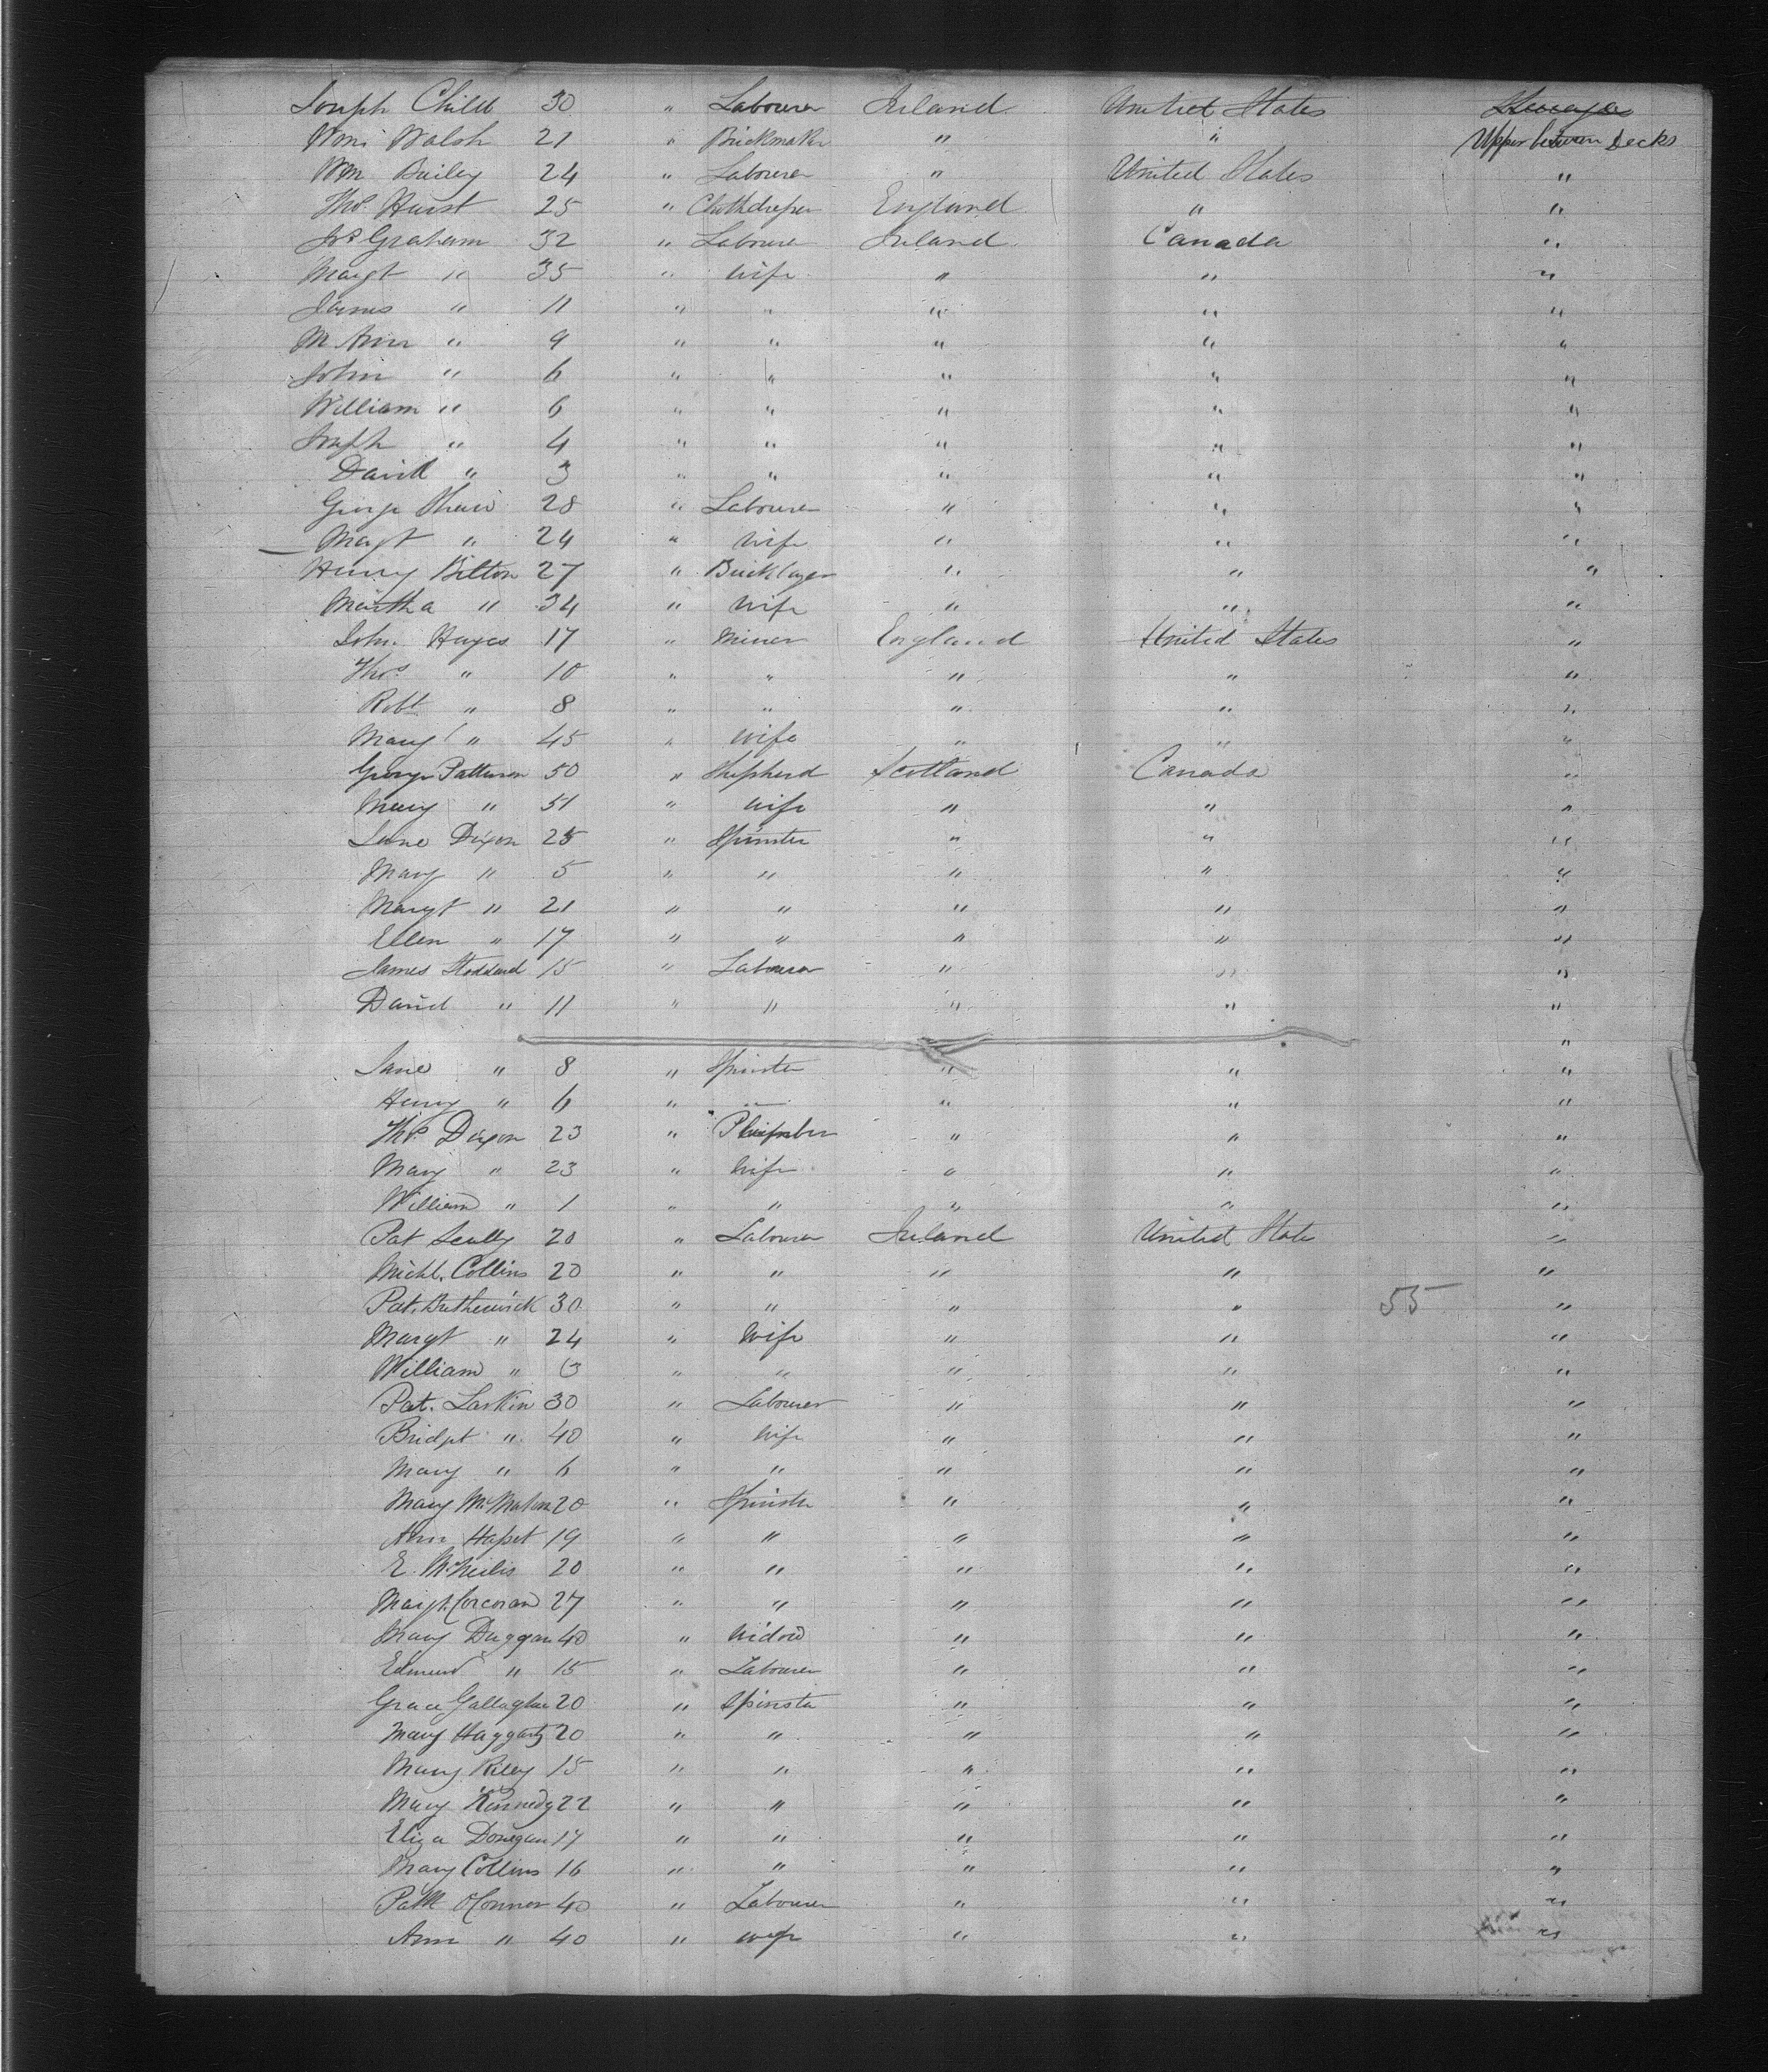 Joseph Child 30 " Labourer Ireland United States
Wm Walsh 21 " Brickmaker " " Upper between Decks
Wm Bailey 24 " Labourer " United States "
Thos. Hurst 25 " England " "
Jos Graham 32 " Labourer Ireland Canada "
Margt " 35 " Wife " " "
James " 11 " " " " "
M. Ann " 9 " " " " "
John " 6 " " " " "
William " 6 " " " " "
Joseph " 4 " " " " "
David " 3 " " " " "
George 28 " Labourer " " "
Margt " 24 " Wife " " "
Henry Bilton 27 " Bricklayer " " "
Martha " 34 " Wife " " "
John Hayes 17 " Miner England United States "
Thos " 10 " " " " "
Robt " 8 " " " " "
Mary " 45 " Wife " " "
George Patterson 50 " Shepherd Scotland Canada "
Mary " 51 " Wife " " "
Jane Dixon 25 " Spinster " " "
Mary " 5 " " " " "
Margt " 21 " " " " "
Ellen " 17 " " " " "
James Stoddard 15 " Labourer " " "
David " 11 " " " " "
"
Jane " 8 " Spinster " " "
Henry " 6 " " " " "
Thos Dixon 23 " Plumber " " "
Mary " 23 " Wife " " "
William " 1 " " " " "
Pat Scully 20 " Labourer Ireland United States "
Michl. Collins 20 " " " " "
Pat. 30 " " " " 55 "
Margt " 24 " Wife " " "
William " " " " " "
Pat. Larkin 30 " Labourer " " "
Bridget " 40 " Wife " " "
Mary " 6 " " " " "
Mary McMahon 20 " Spinster " " "
Ann 19 " " " " "
E. McNeilis 20 " " " " "
Margt. Corcoran 27 " " " " "
Mary Duggan 40 " Widow " " "
Edmund " 15 " Labourer " " "
Grace Gallagher 20 " Spinster " " "
Mary Haggarty 20 " " " " "
Mary Riley 15 " " " " "
Mary Kennedy 22 " " " " "
Eliza Donegan 17 " " " " "
Mary Collins 16 " " " " "
Patk O'Connor 40 " Labourer " " "
Ann " 40 " wife " " "